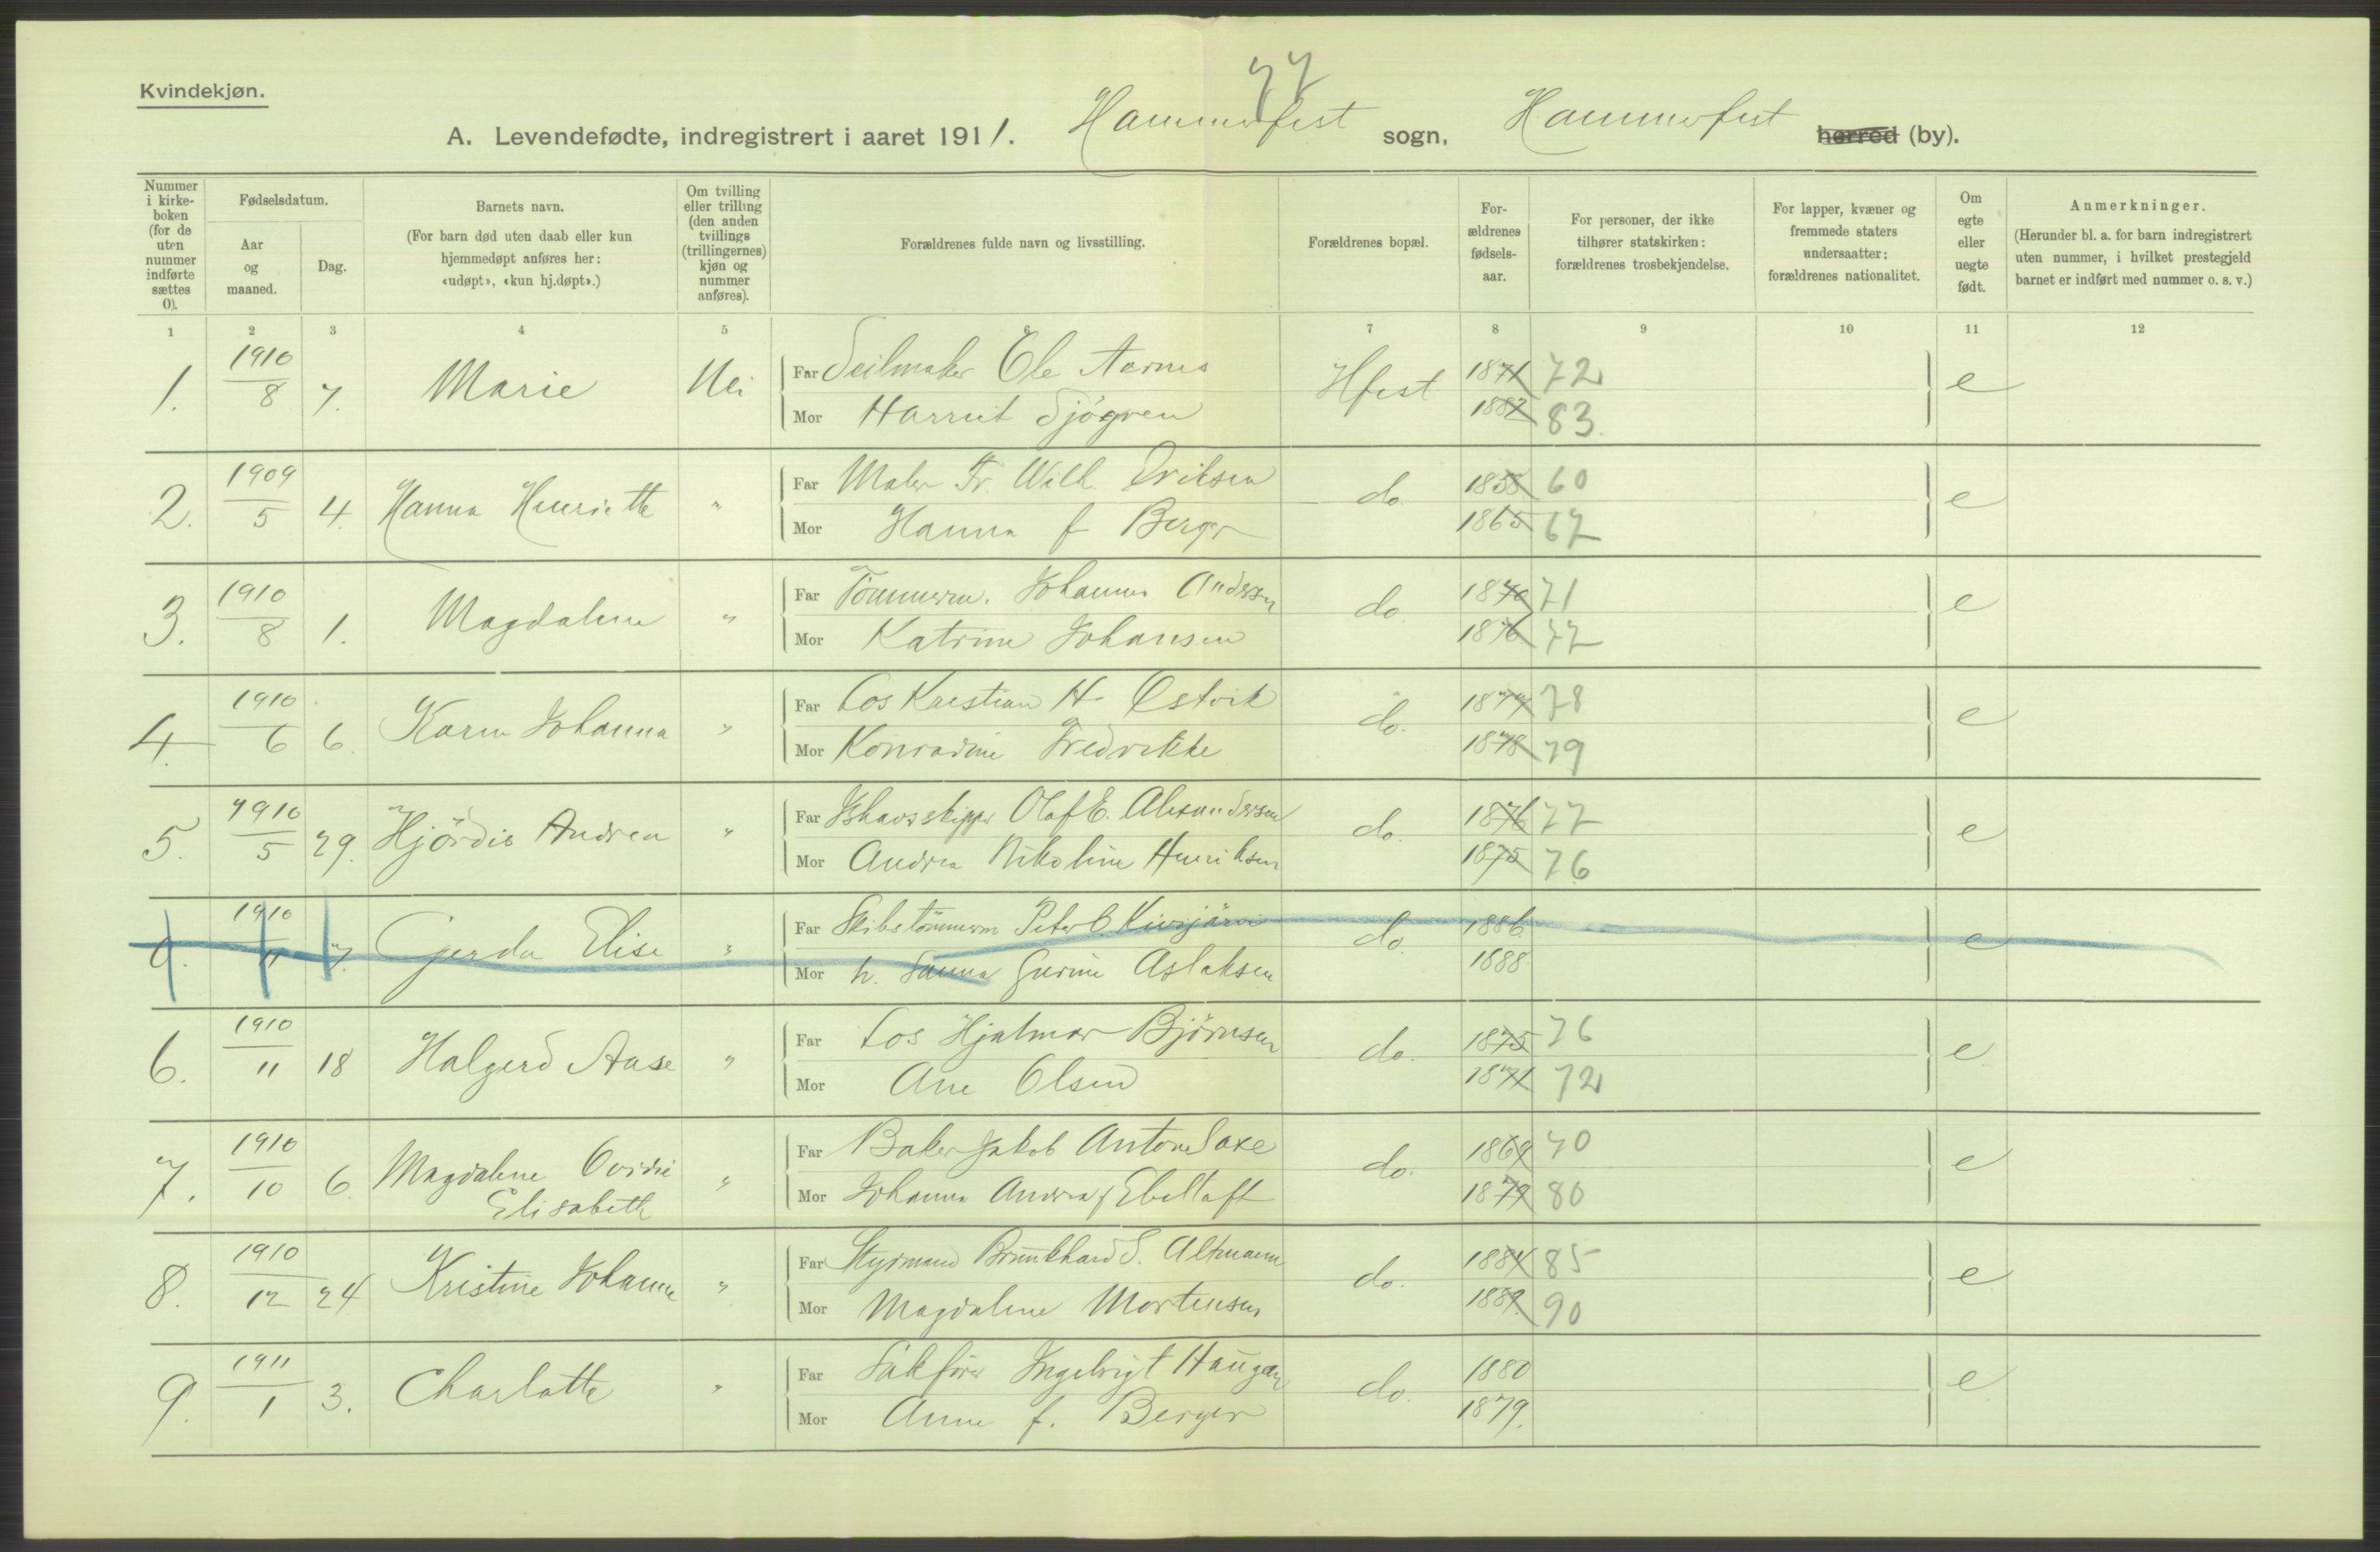 77
Kvindekjøn.
A. Levendefødte, indregistrert i aaret 1911. Hammerfest sogn, Hammerfest herred (by).
Nummer i kirke-boken (for de uten nummer indførte sættes 0).
Fødselsdatum.
Aar og maaned.
Dag.
Barnets navn.
(For barn død uten daab eller kun hjemmedøpt anføres her: «udøpt», «kun hj.døpt».)
Om tvilling eller trilling (den anden tvillings (trillingernes) kjøn og nummer anføres).
Forældrenes fulde navn og livsstilling.
Forældrenes bopæl.
For-ældrenes fødsels-aar.
For personer, der ikke tilhører statskirken: forældrenes trosbekjendelse.
For lapper, kvæner og fremmede staters undersaatter: forældrenes nationalitet.
Om egte eller uegte født.
Anmerkninger.
(Herunder bl. a. for barn indregistrert uten nummer, i hvilket prestegjeld barnet er indført med nummer o. s. v.)
1 2 3 4 5 6 7 8 9 10 11 12
1. 1910/8 7. Marie Nei Far Seilmaker Ole Aarnes Hfest 1871 72 e
Mor Harriet Sjögren 1882 83
2. 1909/5 4. Hanna Henriette " Far Maler Fr. Wilh. Eriksen do. 1858 60 e
Mor Hanna f Berger 1865 67
3. 1910/8 1. Magdalene " Far Tömmerm. Johannes Andersen do. 1870 71 e
Mor Katrine Johansen 1876 77
4. 1910/6 6. Karen Johanna " Far Los Kristian H. Østvik do. 1877 78 e
Mor Konradine Fredrikke 1878 79
5. 1910/5 29. Hjördis Andrea " Far Ishavsskipper Olaf E. Alexandersen do. 1876 77 e
Mor Andrea Nikoline Henriksen 1875 76
0. 1910/11 7. Gjerda Elise " Far Skibstömmerm Peter C Kivijärvi do. 1886 e
Mor h. Sanna Gurine Aslaksen 1888
6. 1910/11 18 Halgerd Aase " Far Los Hjalmar Björnsen do. 1875 76 e
Mor Ane Olsen 1871 72
7. 1910/10 6 Magdalene Ovidie Elisabeth " Far Baker Jakob Anton Saxe do. 1869 70 e
Mor Johanna Andrea f Ebeltoft 1879 80
8. 1910/12 24 Kristine Johanne " Far Styrmand S. Altmann do. 1884 85 e
Mor Magdalene Mortensen 1889. 90
9. 1911/1 3. Charlotte " Far Sakförer Ingebrigt Haugan do. 1880 e
Mor Anne f. Berger 1879.